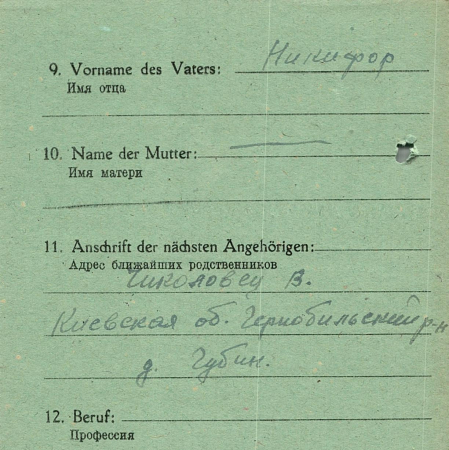 9. Vorname des Vaters: Никифор
Имя отца
10. Name der Mutter: —
Имя матери
11. Anschrift der nächsten Angehörigen:
Адрес ближайших родственников
Чиколовец В.
Киевская об. Чернобильский р-н
д. Чубин.
12. Beruf:
Профессия